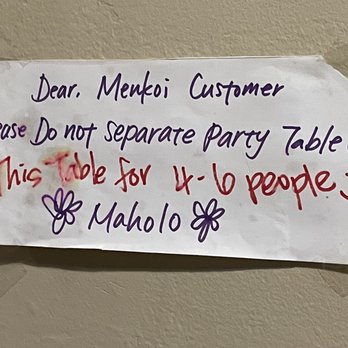 Dear. Menkoi Customer
ease Do not separate Party Table
This Table for 4-6 people
Maholo